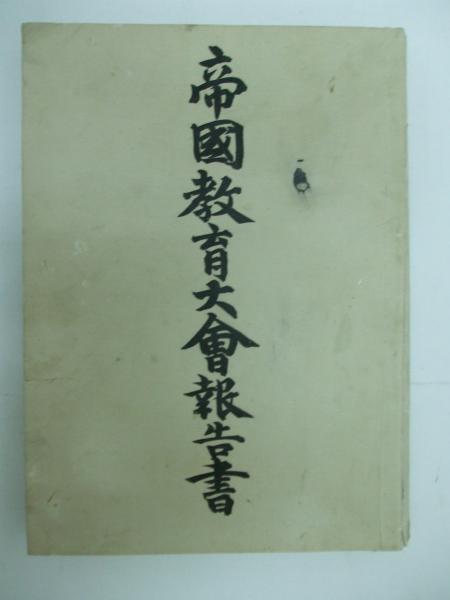 帝國教育大會報告書